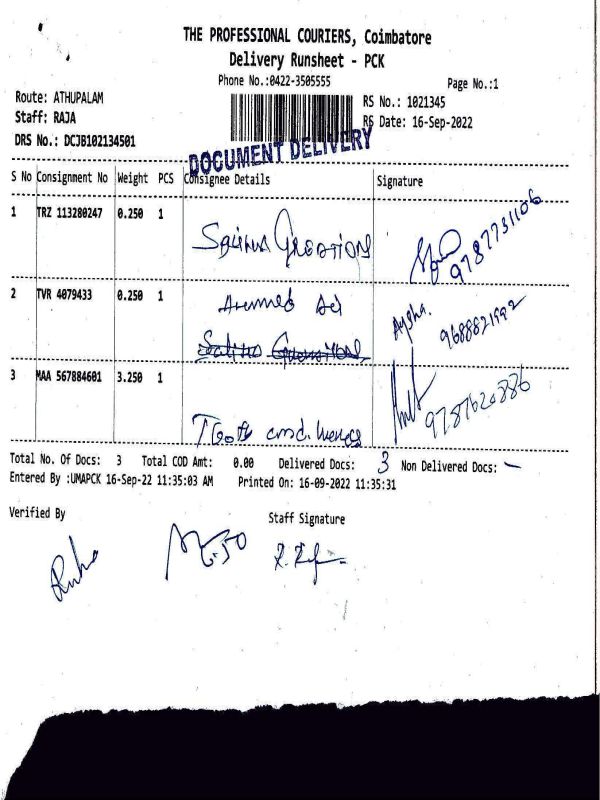 THE PROFESSIONAL COURIERS, Coimbatore
Delivery Runsheet - PCK
Phone No.:0422-3505555
Page No.:1
Route: ATHUPALAM
RS No.: 1021345
Staff: RAJA
RS Date: 16-Sep-2022
DRS No.: DCJB102134501
DOCUMENT DELIVERY
S No Consignment No Weight PCS Consignee Details Signature
1 TRZ 113280247 0.250 1
9787731106
2 TVR 4079433 0.250 1
Aysha.
9688821992
3 MAA 567884601 3.250 1
9787620886
Total No. Of Docs: 3 Total COD Amt: 0.00 Delivered Docs: 3 Non Delivered Docs: —
Entered By :UMAPCK 16-Sep-22 11:35:03 AM Printed On: 16-09-2022 11:35:31
Verified By
Staff Signature